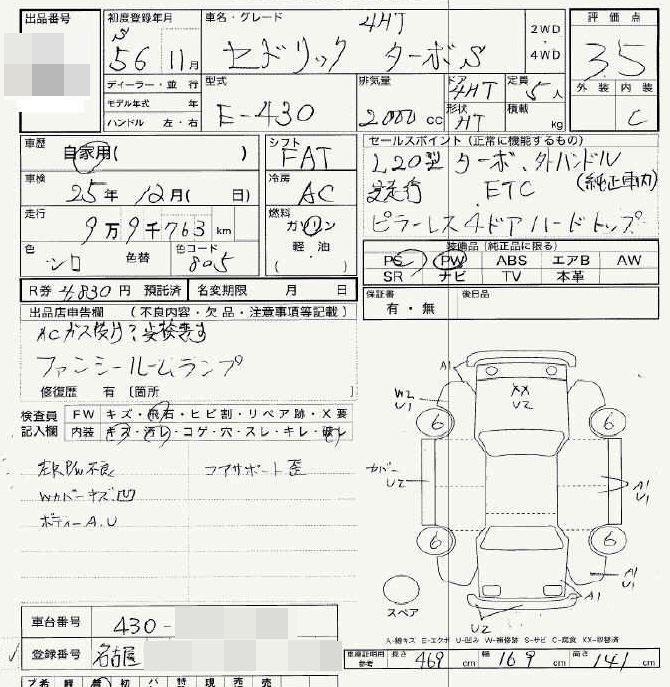 出品番号 初度登録年月 車名・グレード 評価点
S 56 11月 セドリック ターボS 4HT 2WD・4WD 3.5
ディーラー・並行 型式 排気量 ドア 定員 外装 内装
モデル年式 年 E-430 2000cc 4HT 5人 C
ハンドル 左・右 形状 HT 積載 kg
車歴 自家用( ) シフト FAT セールスポイント(正常に機能するもの)
車検 25年 12月( 日) 冷房 AC L20型 ターボ、外ハンドル
ETC (純正車内)
走行 9万9千763km 燃料 ガソリン ピラーレス4ドアハードトップ
色 シロ 色替 色コード 805 軽・油 ( )
装備品(純正品に限る)
PS PW ABS エアB AW
SR ナビ TV 本革
R券 4,830円 預託済 名変期限 月 日
保証書 有・無 後日品
出品店申告欄 (不良内容・欠品・注意事項等記載)
ACガス
ファンシールームランプ
修復歴 有 [箇所 ]
検査員記入欄 FW キズ・飛石・ヒビ割・リペア跡・X要
内装 キズ・汚レ・コゲ・穴・スレ・キレ・破レ
左R PW不良 コアサポート歪
Wカバーキズ凹
ボディーA.U
A1
W2 U1
XX U2
6 6
カバー U2
A1 U1
6 6
A1 U1
A1
U2
スペア
A-線キズ E-エクボ U-凹み W-補修跡 S-サビ C-腐食 XX-取替済
車台番号 430-
登録番号 名古屋
車庫証明用参考 長さ 469cm 幅 169cm 高さ 141cm